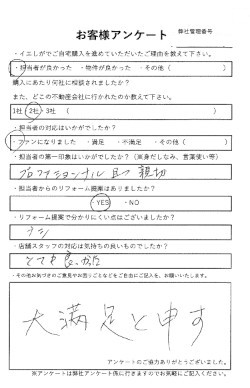 お客様アンケート 弊社管理番号
・イエしがでご自宅購入を進めていただいたご理由を教えて下さい。
・担当者が良かった ・物件が良かった ・その他( )
購入にあたり何社に相談されましたか？
また、どこの不動産会社に行かれたのか教えて下さい。
1社・2社・3社 ( )
・担当者の対応はいかがでしたか？
・ファンになりました ・満足 ・不満足 ・その他( )
・担当者の第一印象はいかがでしたか？(※身だしなみ、言葉使い等)
プロフェッショナル 且つ 親切
・担当者からのリフォーム提案はありましたか？
・YES ・NO
・リフォーム提案で分かりにくい点はございましたか？
ナシ
・店舗スタッフの対応は気持ちの良いものでしたか？
とても良かった
・その他お気づきのご意見やお困りごとなどをご自由にご記入を、お願いいたします。
大満足と申す
アンケートのご協力ありがとうございました。
※アンケートは弊社アンケート係に行きますのでお気軽にご記入ください。